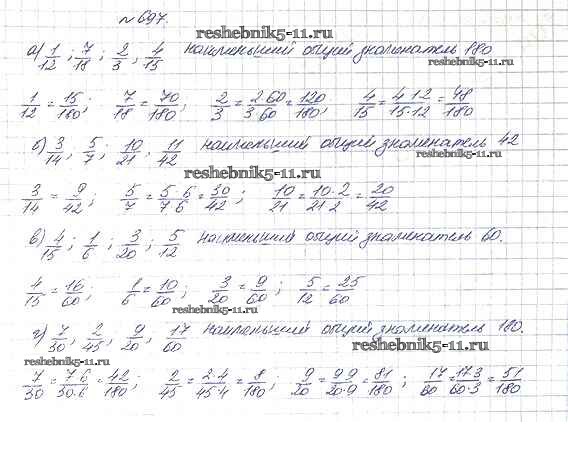 №697.
reshebnik5-11.ru
а) 1/12 ; 7/18 ; 2/3 ; 4/15 наименьший общий знаменатель 180
reshebnik5-11.ru
1/12 = 15/180 ; 7/18 = 70/180 ; 2/3 = 2·60/3·60 = 120/180 ; 4/15 = 4·12/15·12 = 48/180
reshebnik5-11.ru
б) 3/14 ; 5/7 ; 10/21 ; 11/42 наименьший общий знаменатель 42
reshebnik5-11.ru
reshebnik5-11.ru
3/14 = 9/42 ; 5/7 = 5·6/7·6 = 30/42 ; 10/21 = 10·2/21·2 = 20/42
в) 4/15 ; 1/6 ; 3/20 ; 5/12 наименьший общий знаменатель 60.
4/15 = 16/60 ; 1/6 = 10/60 ; 3/20 = 9/60 ; 5/12 = 25/60
reshebnik5-11.ru
г) 7/30 ; 2/45 ; 9/20 ; 17/60 наименьший общий знаменатель 180.
reshebnik5-11.ru
reshebnik5-11.ru
7/30 = 7·6/30·6 = 42/180 ; 2/45 = 2·4/45·4 = 8/180 ; 9/20 = 9·9/20·9 = 81/180 ; 17/60 = 17·3/60·3 = 51/180